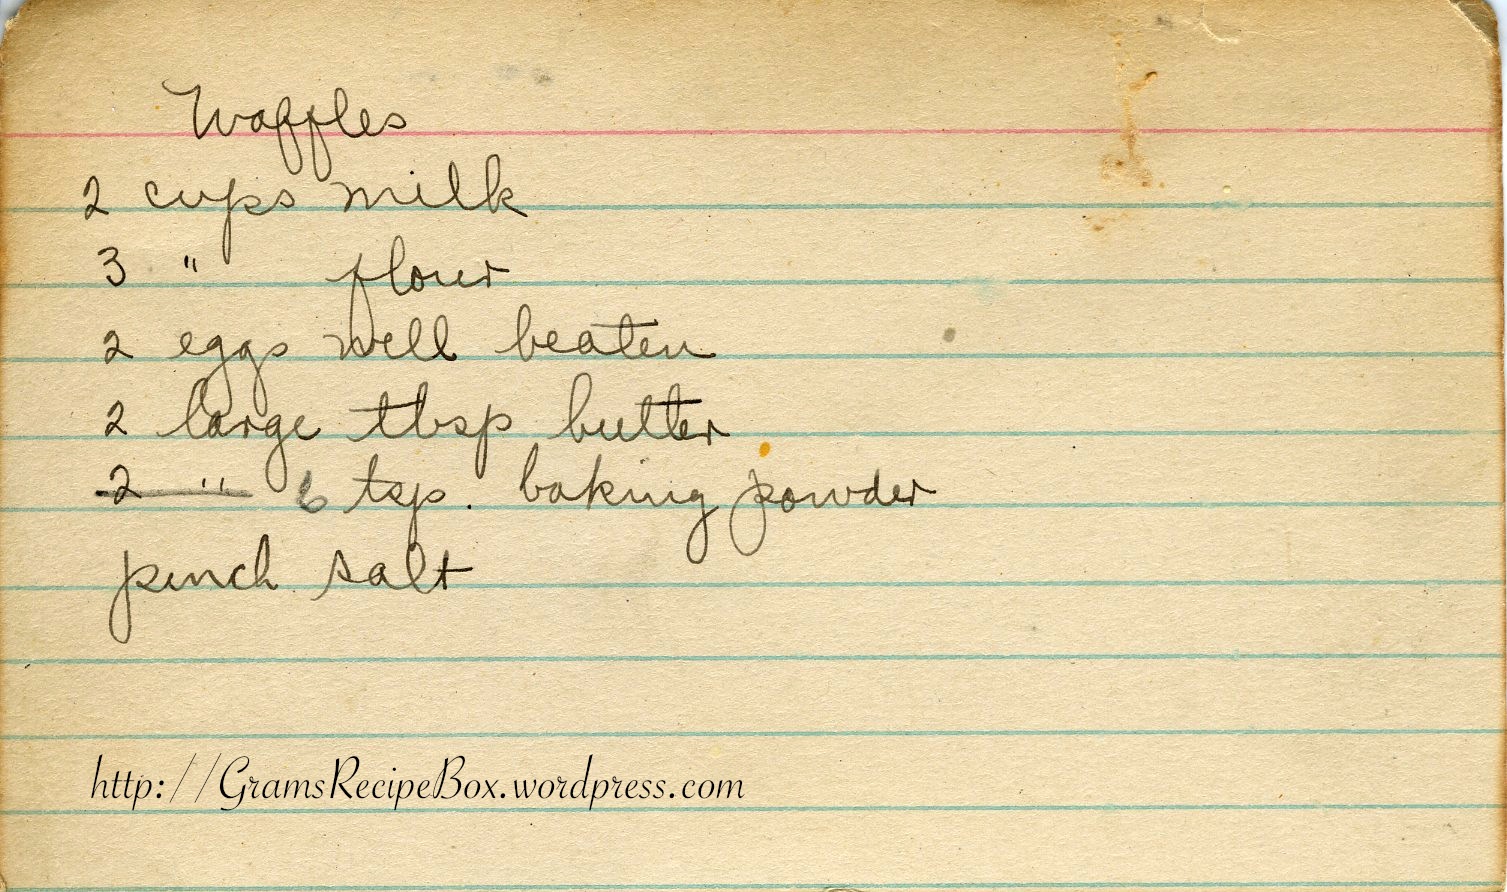 Waffles
2 cups milk
3 " flour
2 eggs well beaten
2 large tbsp butter
2 " 6 tsp. baking powder
pinch salt
http://GramsRecipeBox.wordpress.com